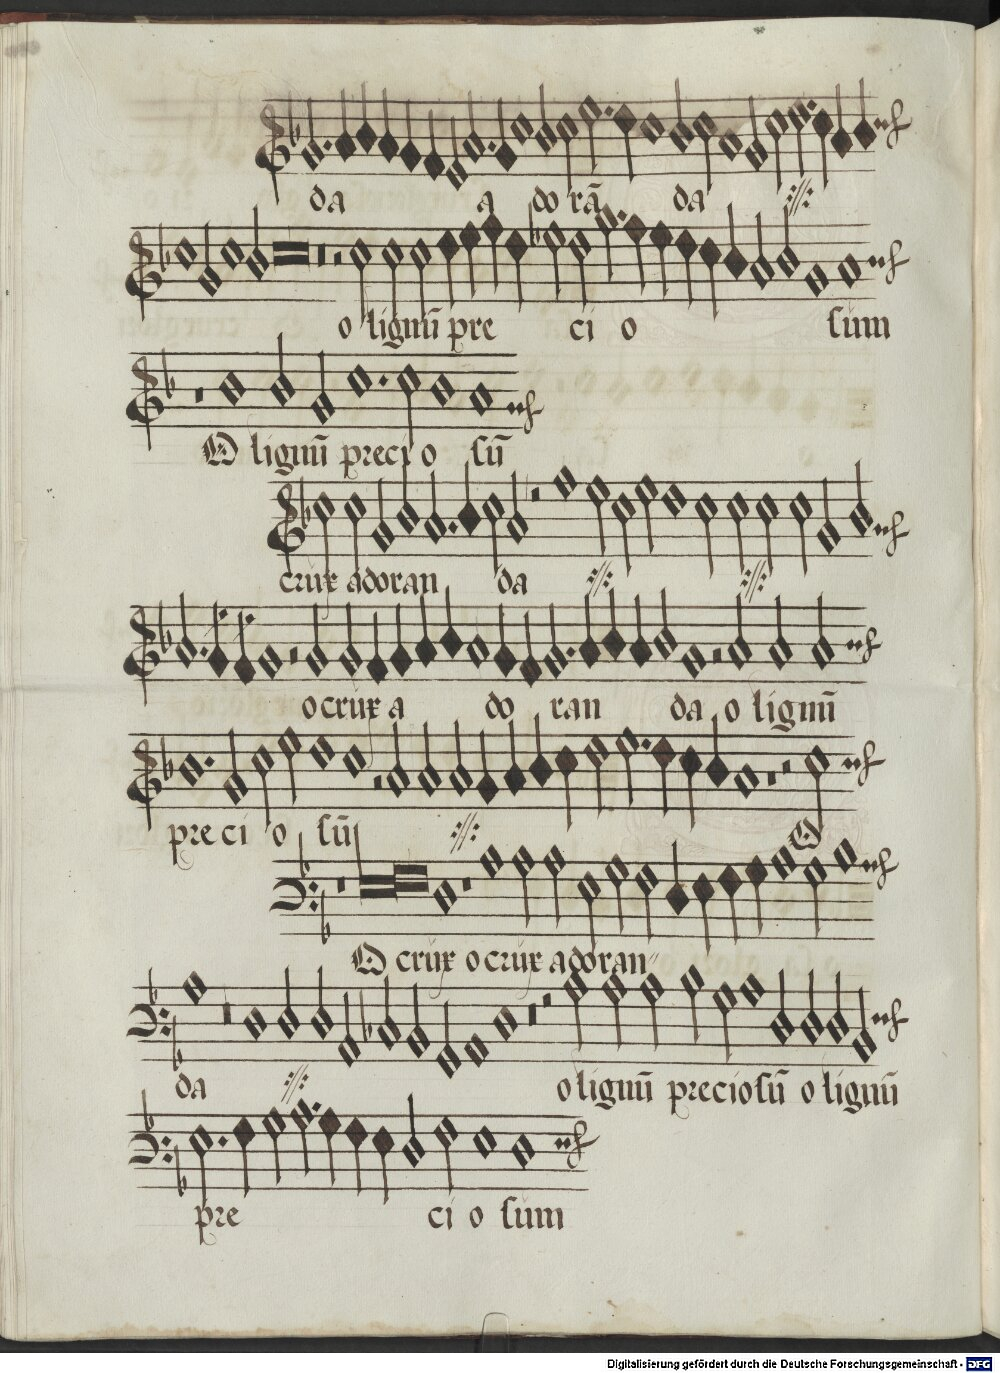 da a do rā da
o lignū pre ci o sum
O lignū preci o sū
crux adoran da
o crux a do ran da o lignū
pre ci o sū O
O crux o crux adoran
da o lignū preciosū o lignū
pre ci o sum
Digitalisierung gefördert durch die Deutsche Forschungsgemeinschaft - DFG